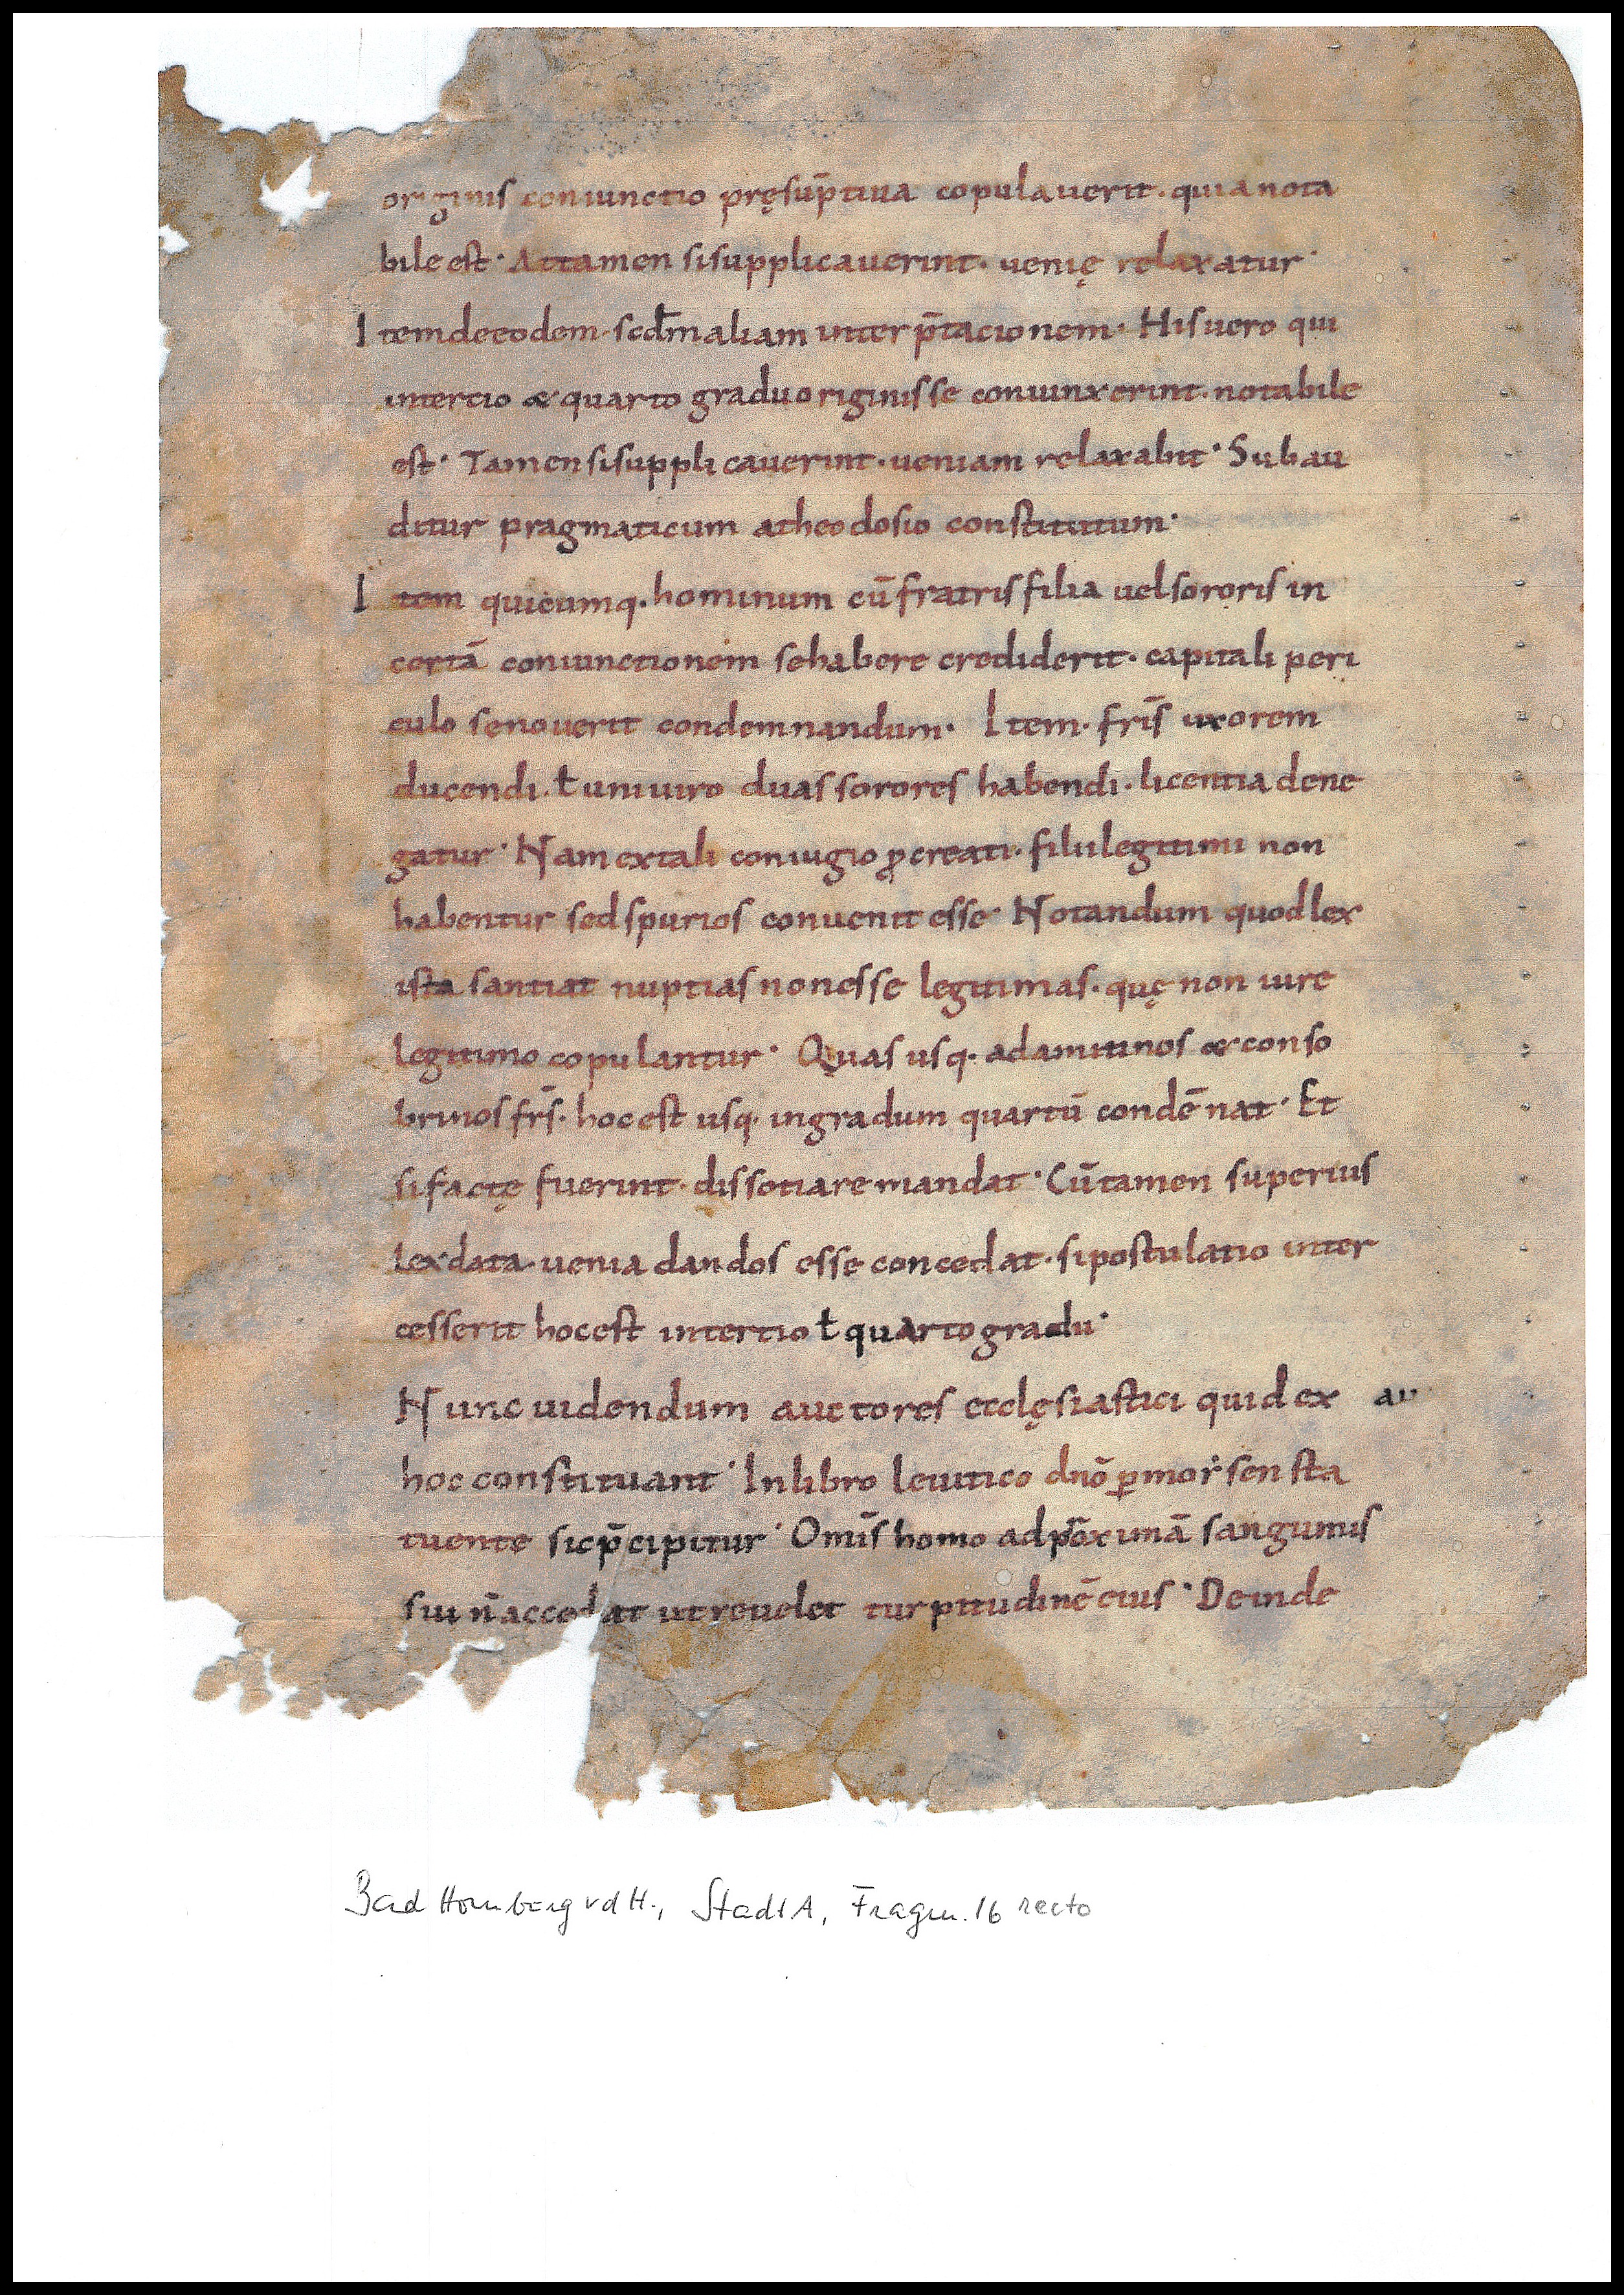 originis coniunctio pręsūptiua copulauerit · quia nota
bile est · Attamen si supplicauerint · uenię relaxatur ·
Item de eodem · scdm̄ aliam interp̄tacionem · His uero qui
in tercio & quarto gradu originis se coniunxerint · notabile
est · Tamen si supplicauerint · ueniam relaxabit · Subau
ditur pragmaticum a theodosio constitutum ·
Item quicumq· hominum cū fratris filia uel sororis in
certā coniunctionem se habere crediderit · capitali peri
culo se nouerit condemnandum · Item · fr̄is uxorem
ducendi · ƚ uni uiro duas sorores habendi · licentia dene
gatur · Nam ex tali coniugio ꝓcreati · filii legitimi non
habentur sed spurios conuenit esse · Notandum quod lex
ista santiat nuptias non esse legitimas · quę non iure
legitimo copulantur · Quas usq· ad amitinos & conso
brinos fr̄s · hoc est usq· in gradum quartū condēnat · Et
si factę fuerint · dissotiare mandat · Cū tamen superius
lex data · uenia dandos esse concedat · si postulatio inter
cesserit hoc est in tertio ƚ quarto gradu ·
Nunc uidendum auctores ecclęsiastici quid ex au
hoc constituant · In libro leuitico dn̄o ꝑ moẏsen sta
tuente sic p̄cipitur · Omīs homo ad p̄oximā sanguinis
sui n̄ accedat ut reuelet turpitudinē eius · Deinde
Bad Homburg v d H., StadtA, Fragm. 16 recto